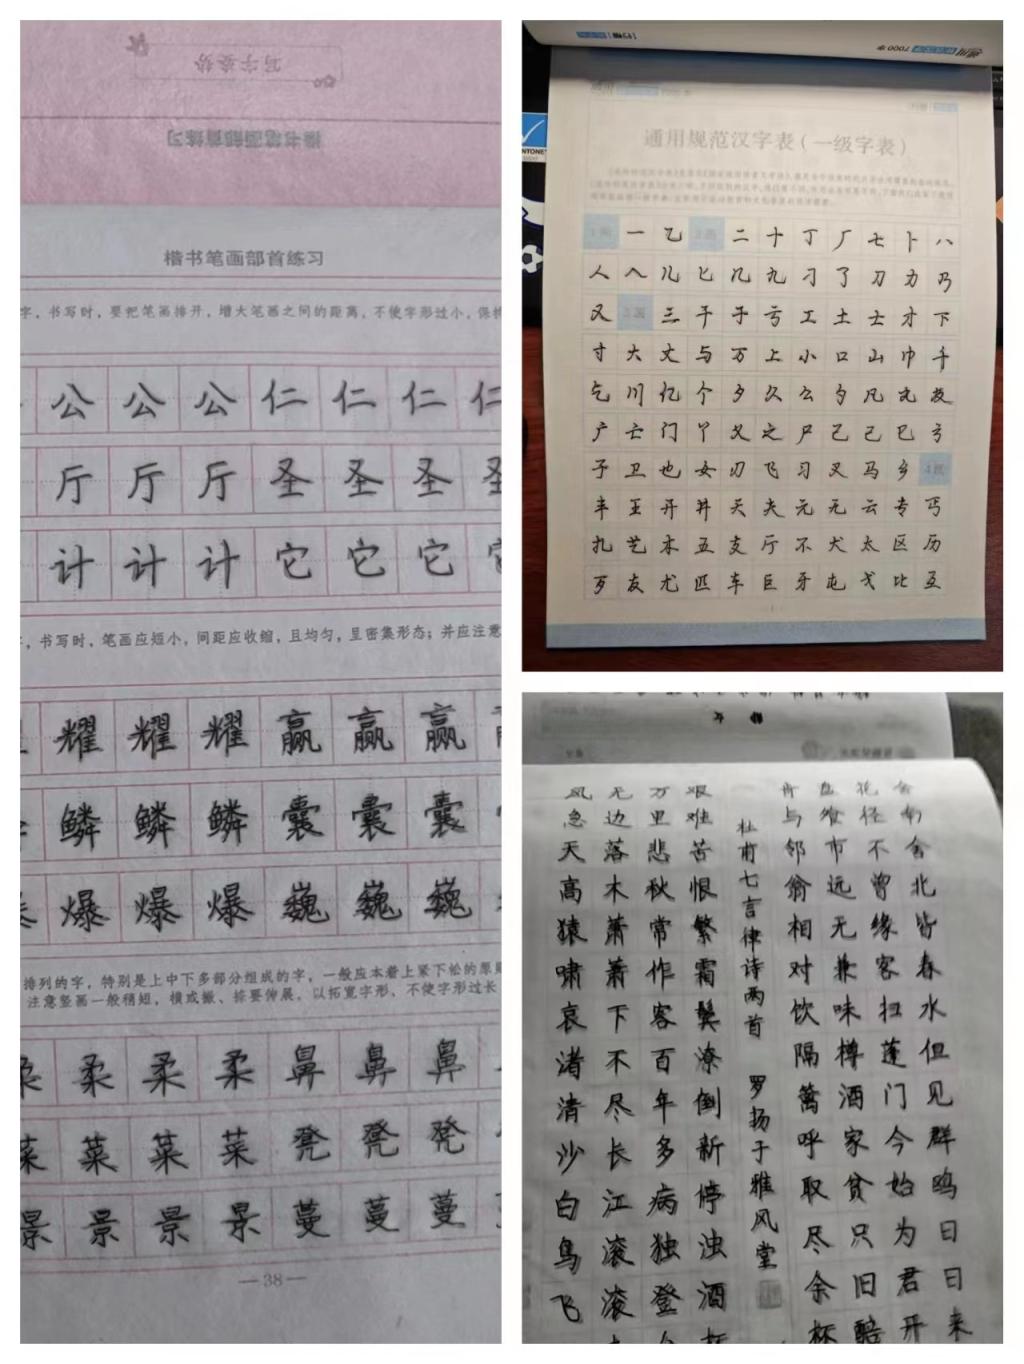 写字姿势
楷书笔画部首练习
楷书笔画部首练习
字，书写时，要把笔画排开，增大笔画之间的距离，不使字形过小，保持
公 公 公 仁 仁 仁 仁
厅 厅 厅 圣 圣 圣 圣
计 计 计 它 它 它
，书写时，笔画应短小，间距应收缩，且均匀，呈密集形态；并应注意
耀 耀 耀 赢 赢 赢
鳞 鳞 鳞 囊 囊 囊
爆 爆 爆 巍 巍 巍
排列的字，特别是上中下多部分组成的字，一般应本着上紧下松的原则
注意竖画一般稍短，横或撇、捺要伸展，以拓宽字形，不使字形过长
柔 柔 柔 柔 鼻 鼻 鼻
菜 菜 菜 菜 凳 凳 凳
景 景 景 景 蔓 蔓 蔓
—38—
7000字
通用规范汉字表（一级字表）
1画 一 乙 2画 二 十 丁 厂 七 卜 八
人 入 儿 匕 几 九 刁 了 刀 力 乃
又 3画 三 干 于 亏 工 土 士 才 下
寸 大 丈 与 万 上 小 口 山 巾 千
乞 川 亿 个 夕 久 么 勺 凡 丸 及
广 亡 门 丫 义 之 尸 己 已 巳 弓
子 卫 也 女 刃 飞 习 叉 马 乡 4画
丰 王 开 井 天 夫 元 无 云 专 丐
扎 艺 木 五 支 厅 不 犬 太 区 历
歹 友 尤 匹 车 巨 牙 屯 戈 比 互
舍南舍北皆春水但见群鸥日日来
花径不曾缘客扫蓬门今始为君开
盘飧市远无兼味樽酒家贫只旧醅
肯与邻翁相对饮隔篱呼取尽余杯
杜甫七言律诗两首 罗扬子雅风堂
艰难苦恨繁霜鬓潦倒新停浊酒杯
万里悲秋常作客百年多病独登
无边落木萧萧下不尽长江滚滚
风急天高猿啸哀渚清沙白鸟飞